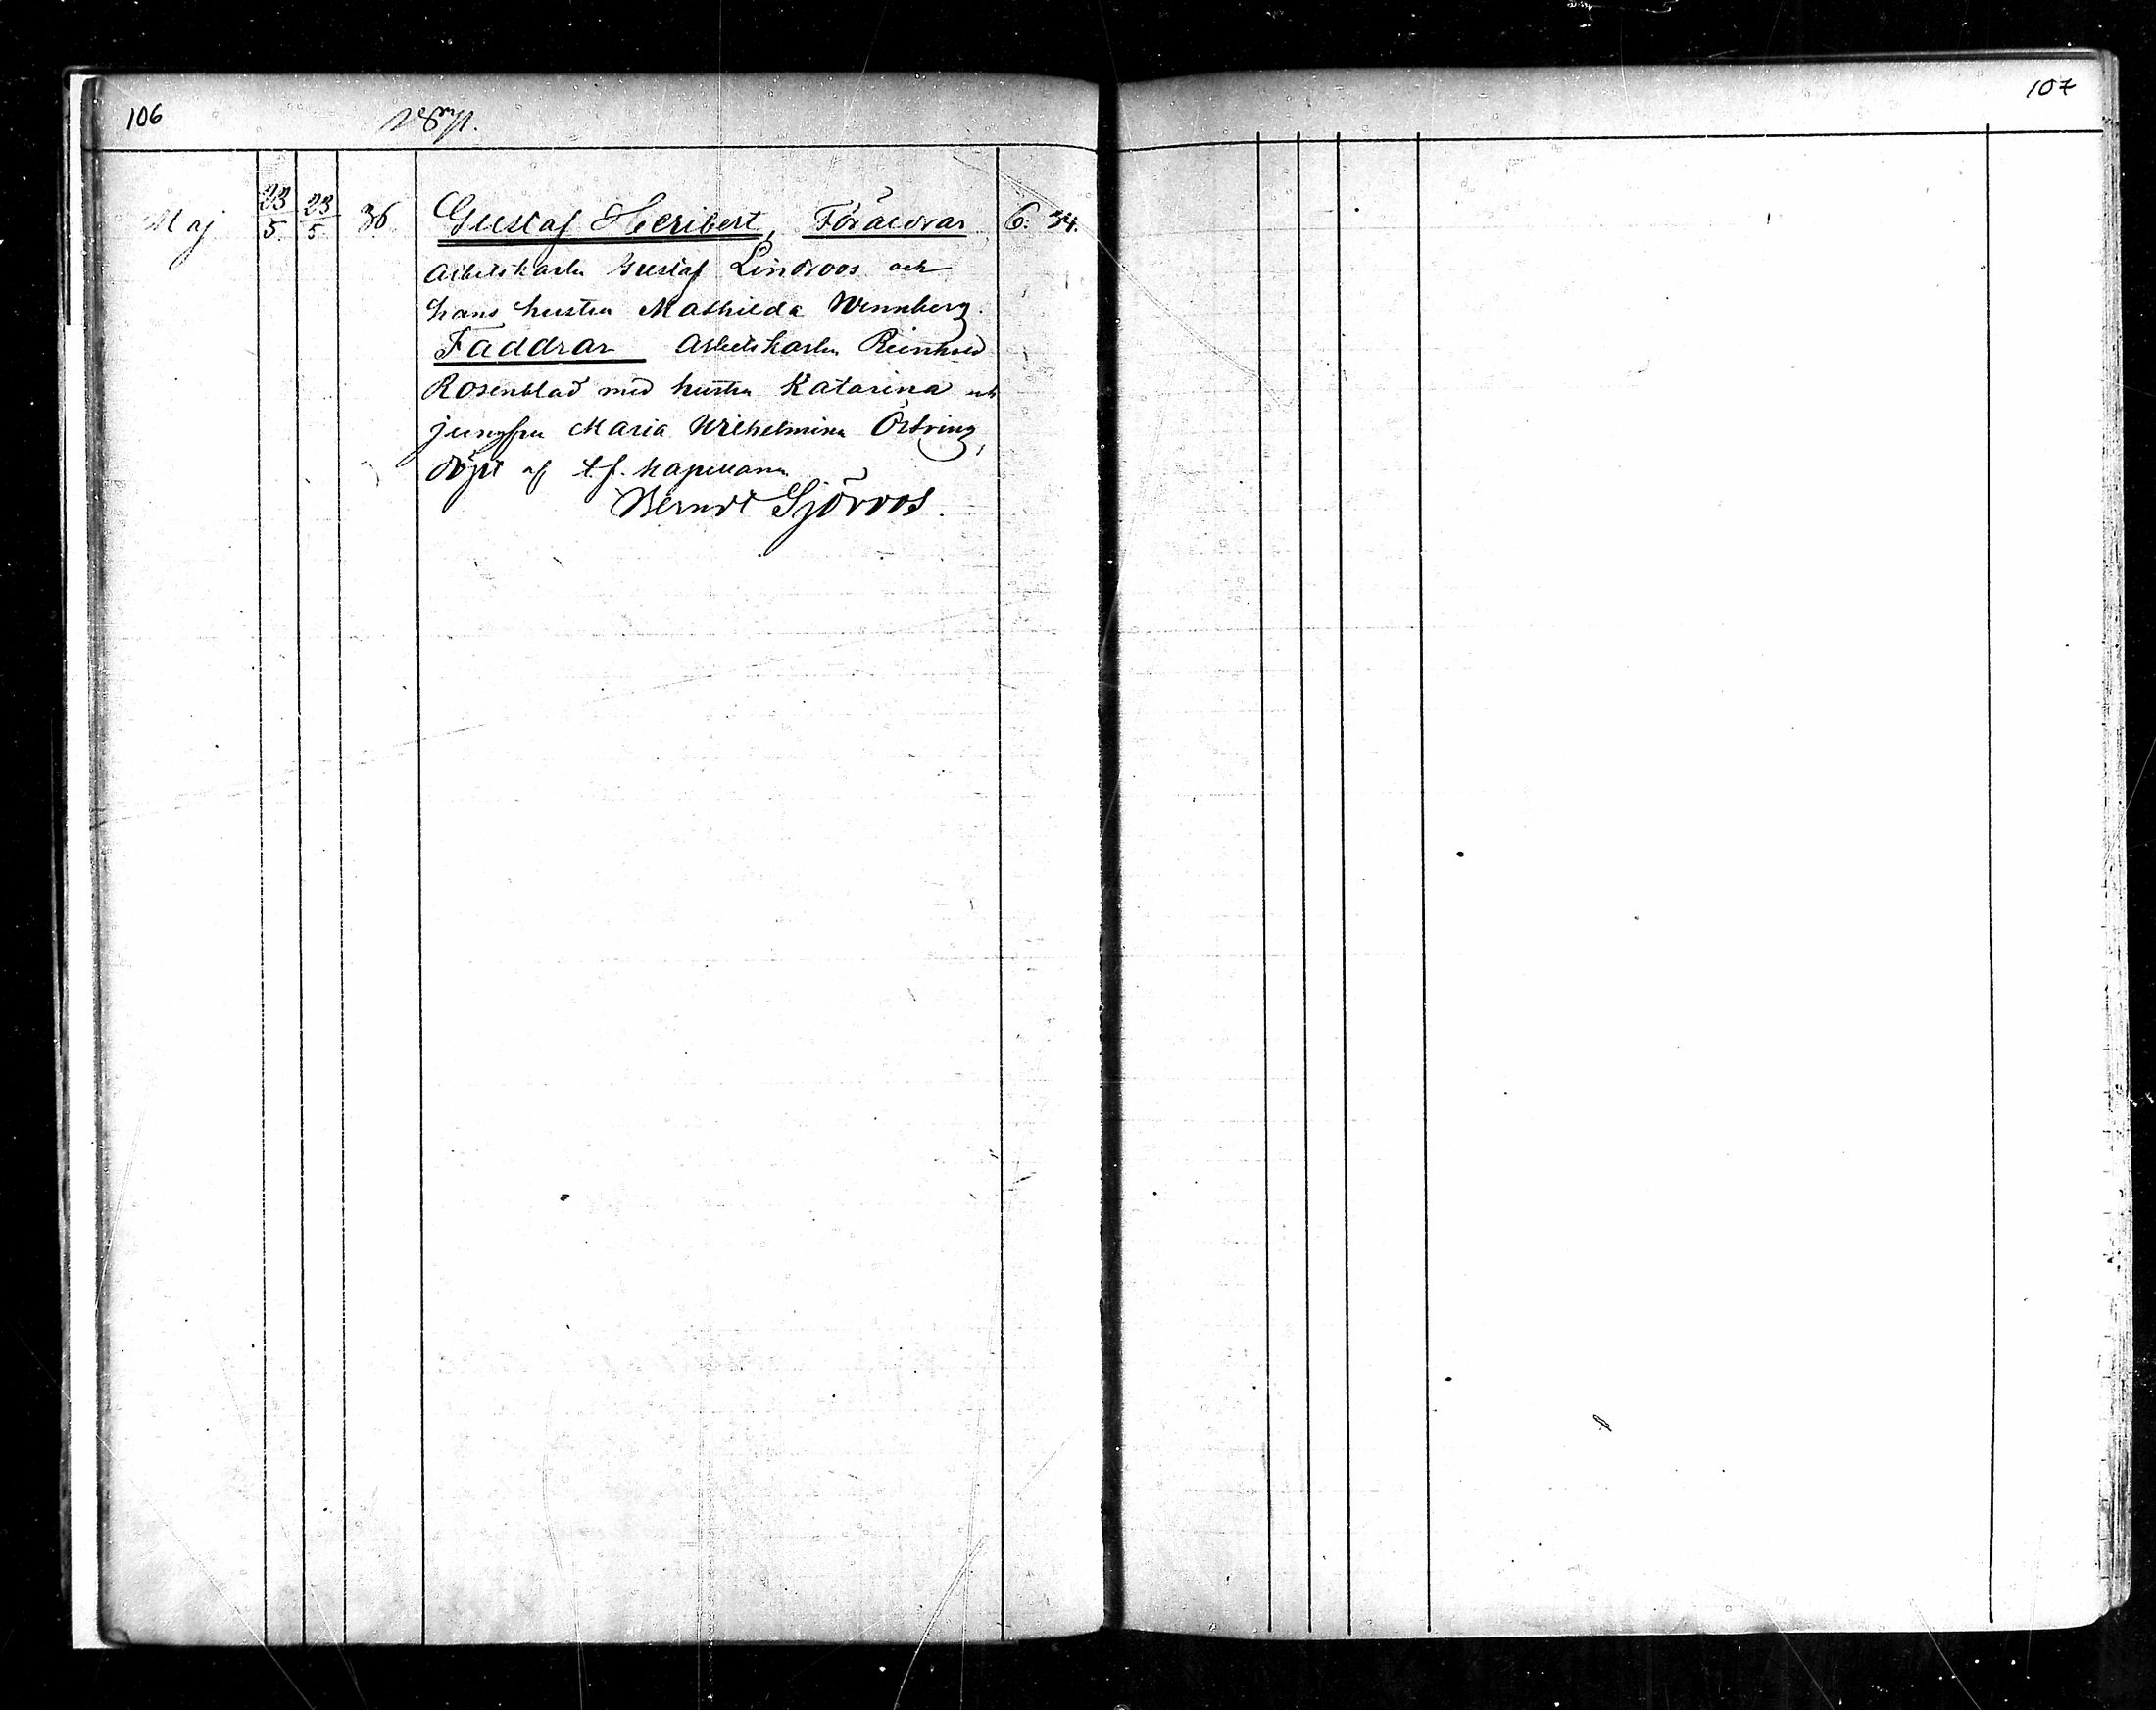 106
107
Maj 23/5. 23/5. 36 Gustaf Heribert, Föräldrar 6. 34.
arbetskarlen Gustaf Lindroos och
hans hustru Mathilda Wennberg.
Faddrar arbetskarlen Reinhold
Rosenblad med hustru Katarina och
jungfru Maria Wilhelmina Östring,
döpt af t.f. kapellanen
Berndt Sjöroos.